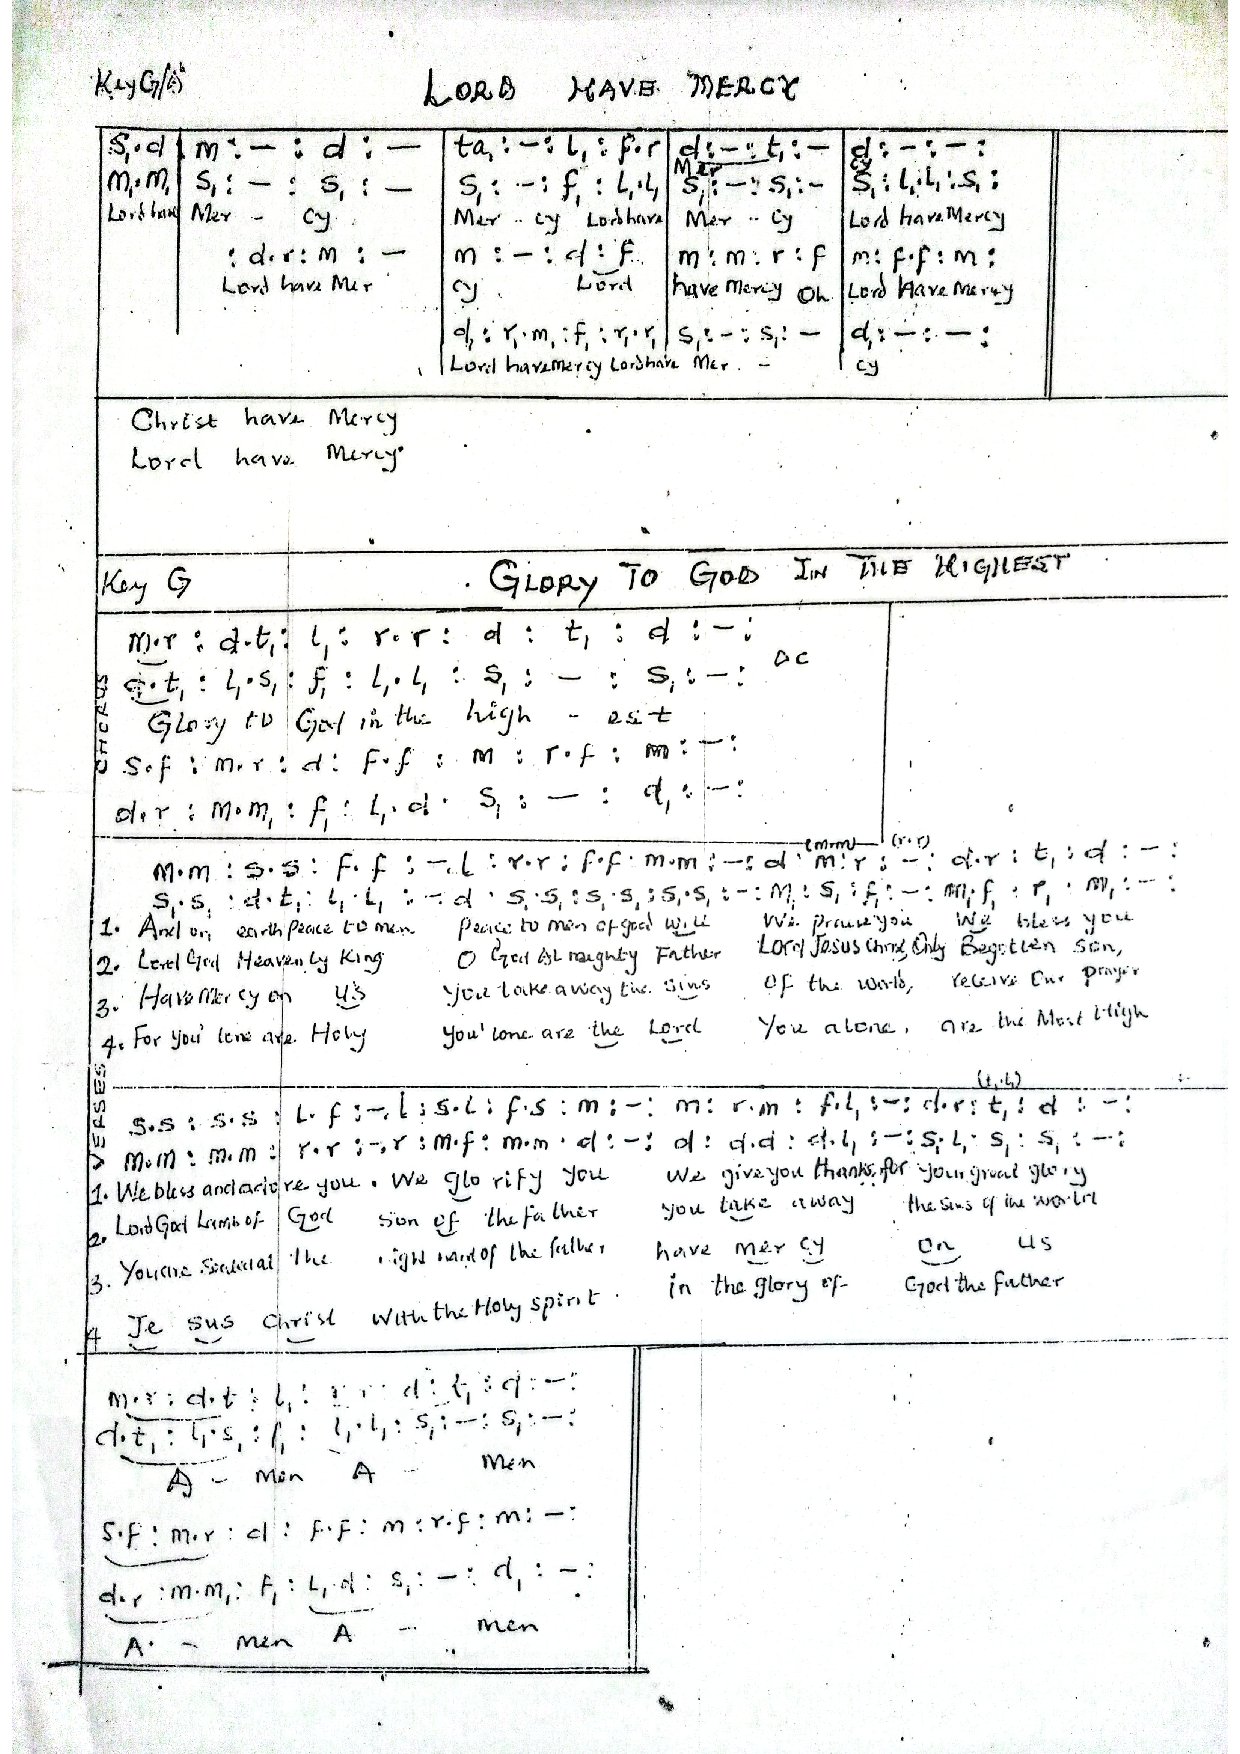 Key G/A♭ LORD HAVE MERCY
s₁.d | m : – : d : – | ta₁ : – : l₁ : f.r | d : – : t₁ : – | d : – : – :
m₁.m₁ | s₁ : – : s₁ : – | s₁ : – : f₁ : l₁.l₁ | s₁ : – : s₁ : – | s₁ : l₁.l₁ : s₁ :
Lord have Mer - cy Mer - cy Lord have Mer - cy Lord have Mercy
: d.r : m : – | m : – : d : f | m : m : r : f | m : f.f : m :
Lord have Mer cy Lord have Mercy Oh Lord Have Mercy
d₁ : r₁.m₁ : f₁ : r₁.r₁ | s₁ : – : s₁ : – | d₁ : – : – :
Lord have mercy Lord have Mer - cy
Christ have Mercy
Lord have Mercy
Key G GLORY TO GOD IN THE HIGHEST
CHORUS
m.r : d.t₁ : l₁ : r.r : d : t₁ : d : – :
d.t₁ : l₁.s₁ : f₁ : l₁.l₁ : s₁ : – : s₁ : – : DC
Glory to God in the high - est
s.f : m.r : d : f.f : m : r.f : m : – :
d.r : m.m₁ : f₁ : l₁.d . s₁ : – : d₁ : – :
VERSES
(m.m) (r.r)
m.m : s.s : f.f : –.l : r.r : f.f . m.m : – : d . m : r : – : d.r : t₁ : d : – :
s₁.s₁ : d.t₁ : l₁.l₁ : –.d . s₁.s₁ : s₁.s₁ : s₁.s₁ : – : m₁ : s₁ : f₁ : – : m₁.f₁ : r₁ . m₁ : – :
1. And on earth Peace to men peace to men of good will We praise you We bless you
2. Lord God Heavenly King O God Almighty Father Lord Jesus Christ, Only Begotten Son,
3. Have Mercy on us you take away the sins of the world, receive Our prayer
4. For you 'lone are Holy you 'lone are the Lord You alone, are the Most High
(t₁.l₁)
s.s : s.s : l.f : –.l : s.l : f.s : m : – : m : r.m : f.l₁ : – : d.r : t₁ : d : – :
m.m : m.m : r.r : –.r : m.f : m.m . d : – : d : d.d : d.l₁ : – : s₁.l₁ : s₁ : s₁ : – :
1. We bless and adore you . We glo rify you We give you thanks, for your great glory
2. Lord God Lamb of God Son of the father you take away the sins of the world
3. You are Seated at the right hand of the father have mer cy on us
4 Je sus Christ With the Holy Spirit . in the glory of God the father
m.r : d.t : l₁ : d : t₁ : d : – :
d.t₁ : l₁.s₁ : f₁ : l₁.l₁ : s₁ : – : s₁ : – :
A - men A - Men
s.f : m.r : d : f.f : m : r.f : m : – :
d.r : m.m₁ : f₁ : l₁.d : s₁ : – : d₁ : – :
A - men A - men